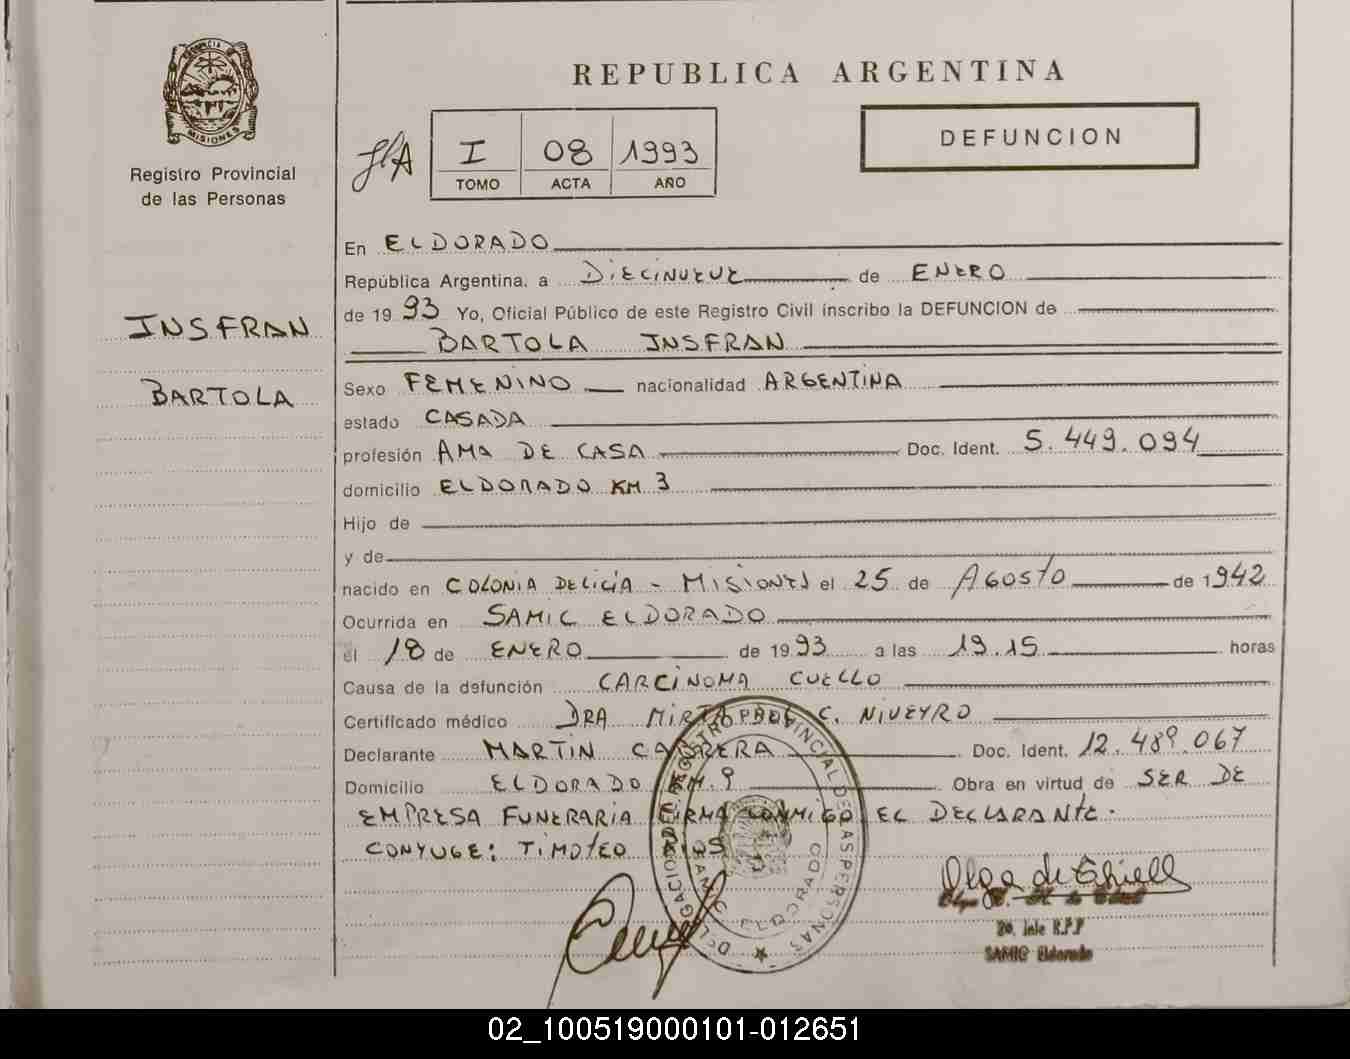 PROVINCIA
MISIONES
Registro Provincial
de las Personas
INSFRAN
BARTOLA
REPUBLICA ARGENTINA
I 08 1993
TOMO ACTA AÑO
DEFUNCION
En ELDORADO
República Argentina, a DIECINUEVE de ENERO
de 1993 Yo, Oficial Público de este Registro Civil inscribo la DEFUNCION de
BARTOLA INSFRAN
Sexo FEMENINO nacionalidad ARGENTINA
estado CASADA
profesión AMA DE CASA Doc. Ident. 5.449.094
domicilio ELDORADO KM 3
Hijo de
y de
nacido en COLONIA DELICIA - MISIONES el 25 de AGOSTO de 1942
Ocurrida en SAMIC ELDORADO
el 18 de ENERO de 1993 a las 19.15 horas
Causa de la defunción CARCINOMA CUELLO
Certificado médico DRA MIRTA C. NIVEYRO
Declarante MARTIN CABRERA Doc. Ident. 12.489.067
Domicilio ELDORADO KM.9 Obra en virtud de SER DE
EMPRESA FUNERARIA FIRMA CONMIGO EL DECLARANTE.
CONYUGE: TIMOTEO
REGISTRO PROVINCIAL DE LAS PERSONAS
DELEGACION
ELDORADO
SAMIC Eldorado
02_100519000101-012651